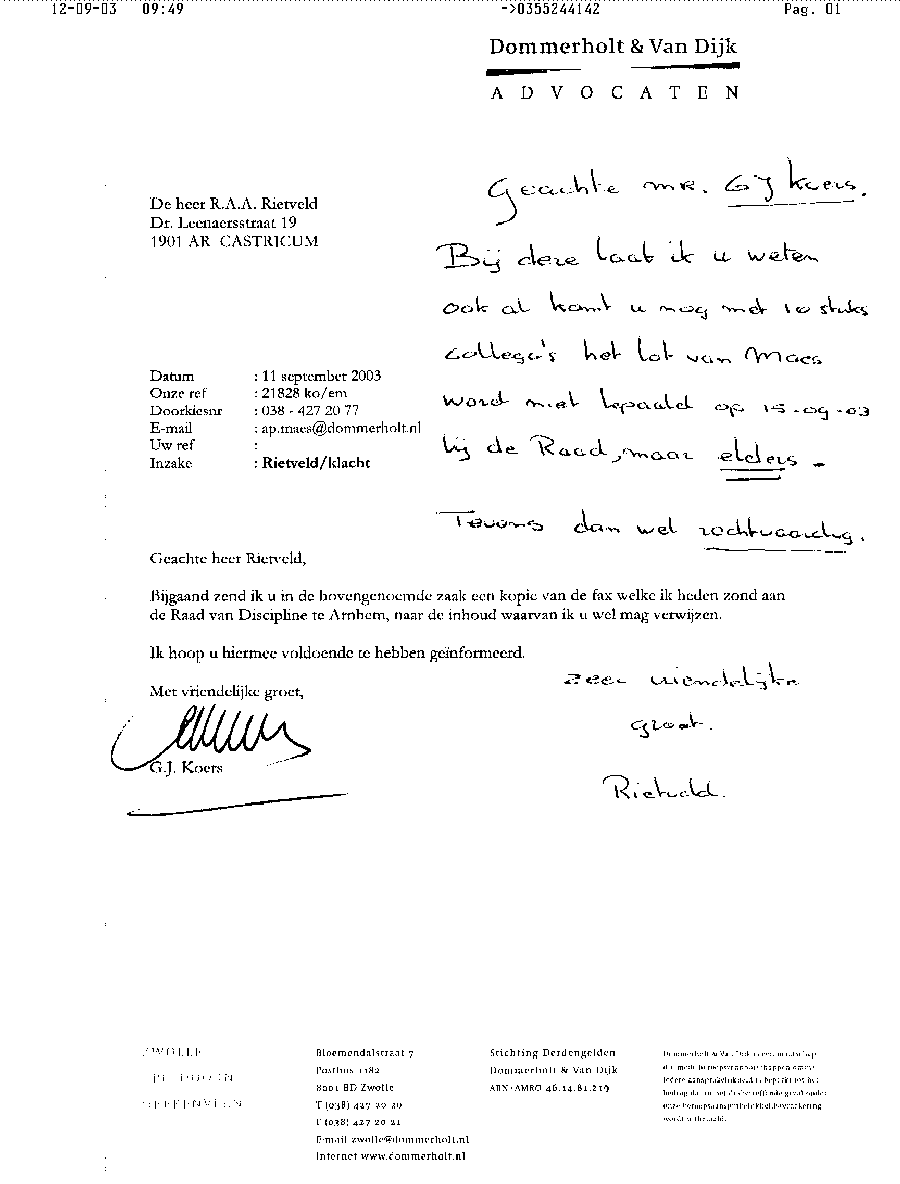 12-09-03 09:49 ->0355244142 Pag. 01
Dommerholt & Van Dijk
ADVOCATEN
De heer R.A.A. Rietveld
Dr. Leenaersstraat 19
1901 AR CASTRICUM
Geachte mr. GJ Koers.
Bij deze laat ik u weten
ook al komt u nog met 10 stuks
collega's het lot van Maes
word niet bepaald op 15-09-03
bij de Raad, maar elders -
Tevens dan wel rechtvaardig.
Datum : 11 september 2003
Onze ref : 21828 ko/em
Doorkiesnr : 038 - 427 20 77
E-mail : ap.maes@dommerholt.nl
Uw ref :
Inzake : Rietveld/klacht
Geachte heer Rietveld,
Bijgaand zend ik u in de bovengenoemde zaak een kopie van de fax welke ik heden zond aan
de Raad van Discipline te Arnhem, naar de inhoud waarvan ik u wel mag verwijzen.
Ik hoop u hiermee voldoende te hebben geïnformeerd.
Met vriendelijke groet,
G.J. Koers
zeer vriendelijke
groet.
Rietveld.
ZWOLLE
HEERENVEEN
Bloemendalstraat 7
Postbus 1182
8001 BD Zwolle
T (038) 427 20 20
F (038) 427 20 21
E-mail zwolle@dommerholt.nl
Internet www.dommerholt.nl
Stichting Derdengelden
Dommerholt & Van Dijk
ABN-AMRO 46.14.81.219
Dommerholt & Van Dijk is een maatschap